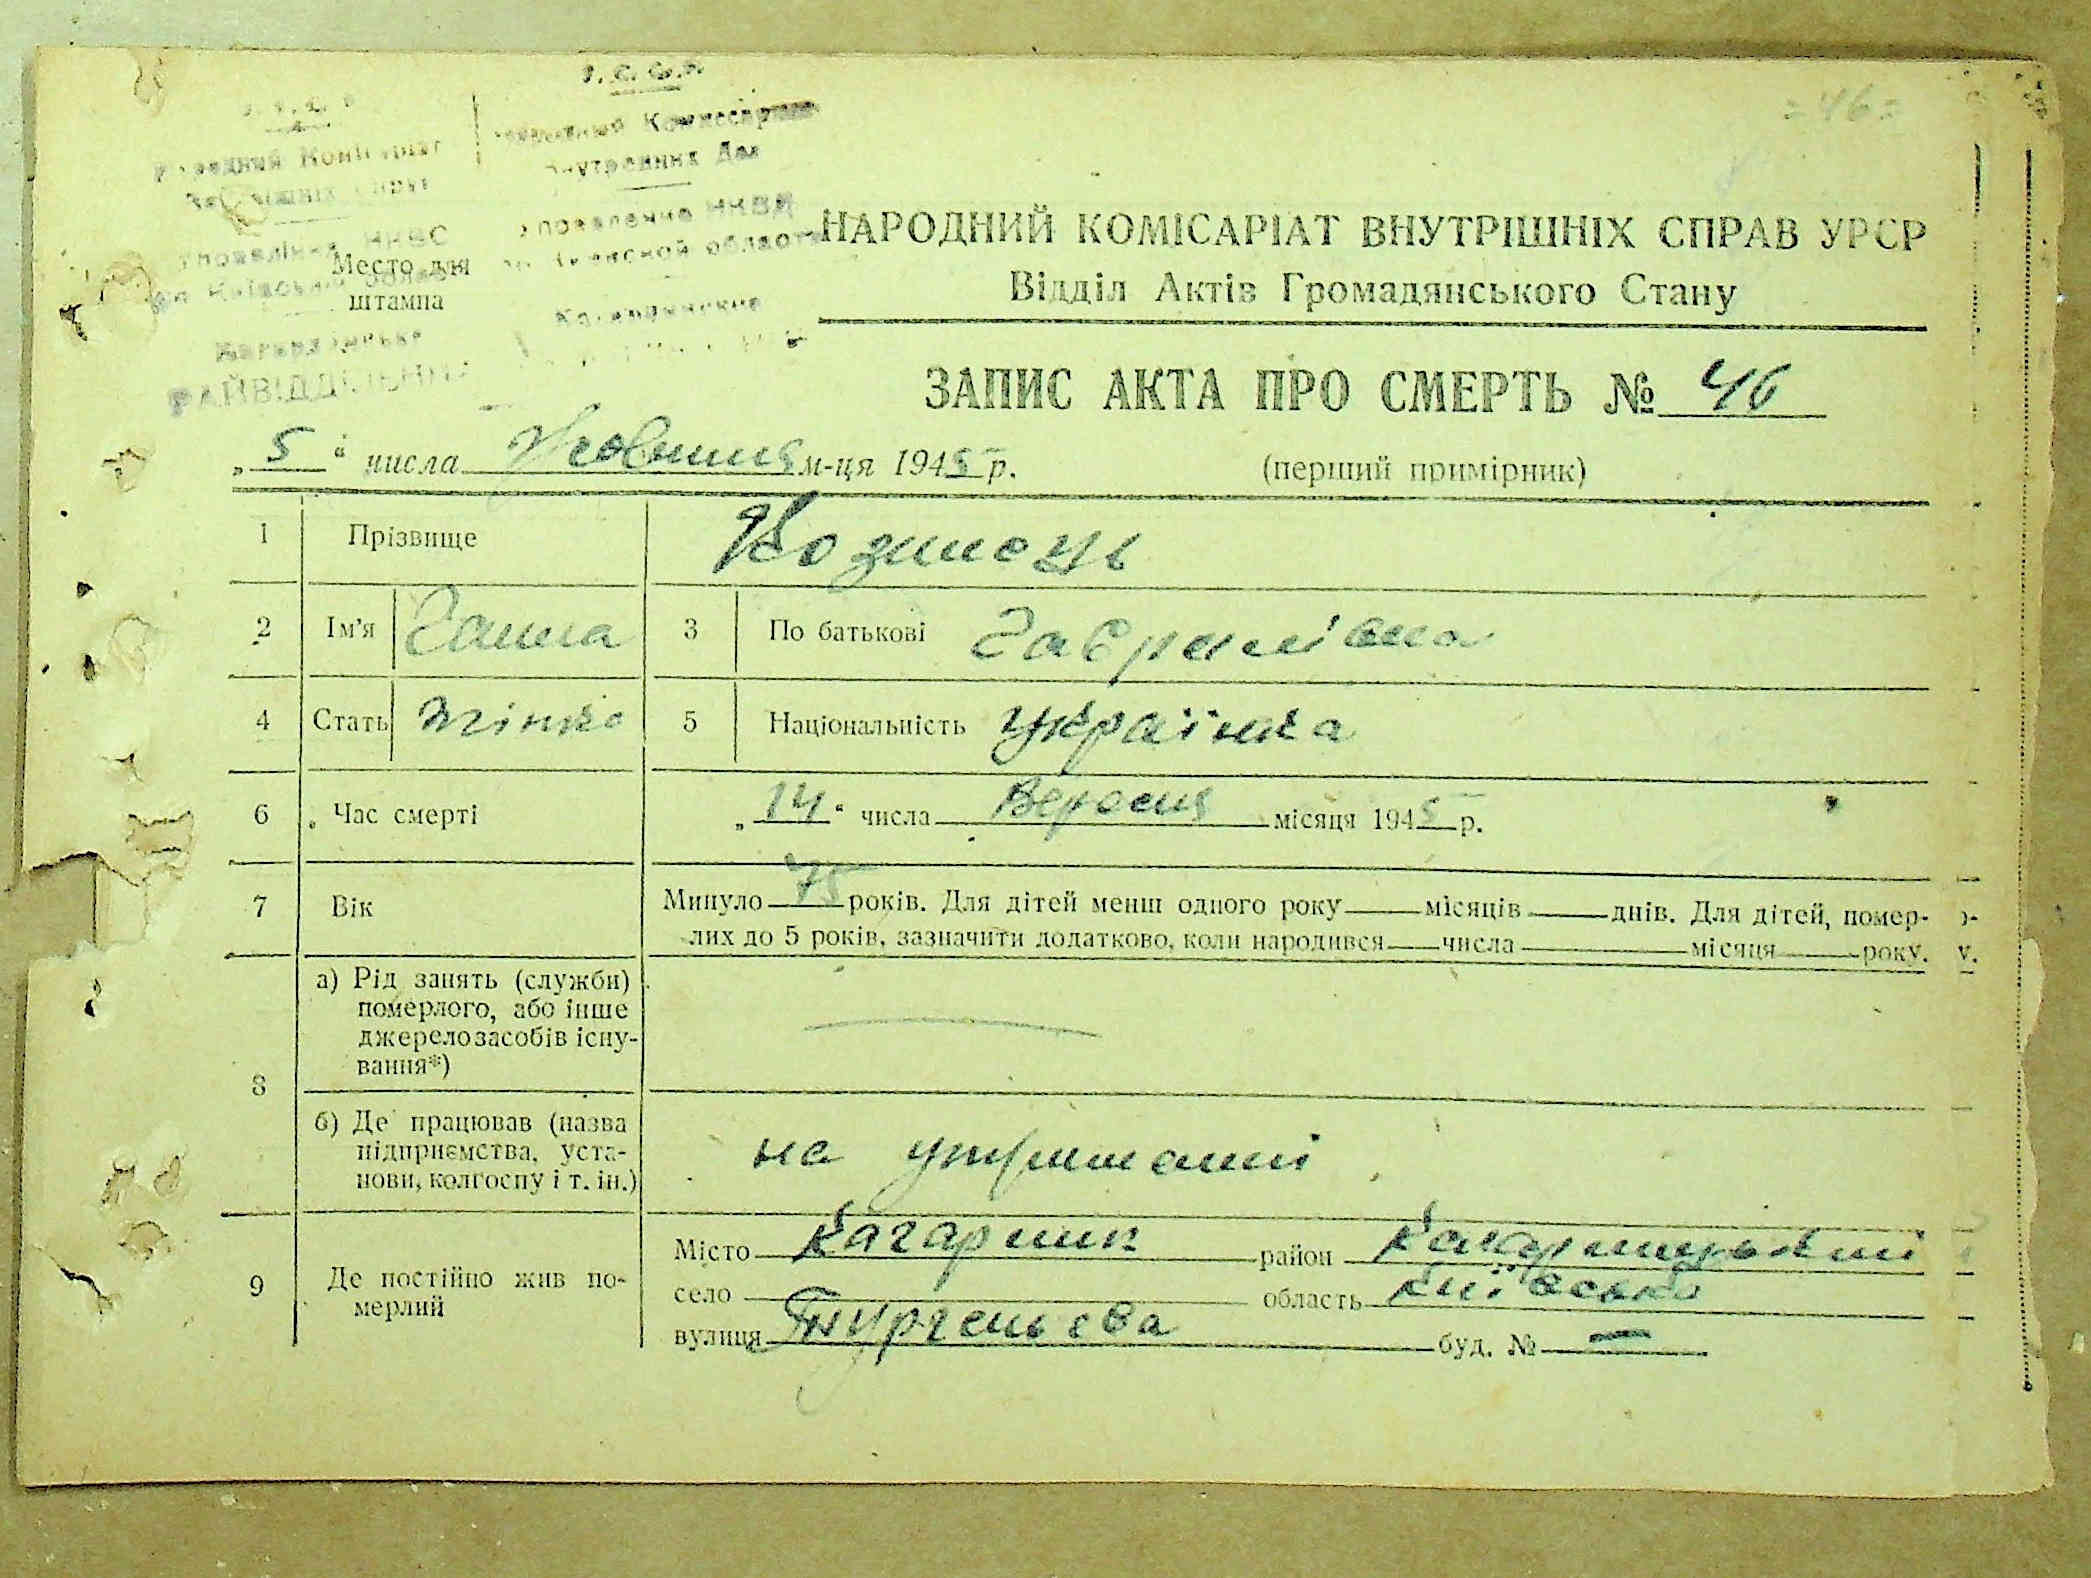 =46=
У.С.С.Р.
Народний Комісаріат
Внутрішніх Справ
Управління НКВС
по Київській області
Кагарлицьке
РАЙВІДДІЛЕННЯ
Народный Комиссариат
Внутренних Дел
Управление НКВД
по Киевской области
Кагарлицкое
Место для
штампа
НАРОДНИЙ КОМІСАРІАТ ВНУТРІШНІХ СПРАВ УРСР
Відділ Актів Громадянського Стану
ЗАПИС АКТА ПРО СМЕРТЬ № 46
„5“ числа Жовтня м-ця 1945 р. (перший примірник)
1 Прізвище Козинець
2 Ім'я Ганна 3 По батькові Гаврилівна
4 Стать жінка 5 Національність українка
6 Час смерті „14“ числа Вересня місяця 1945 р.
7 Вік Минуло 75 років. Для дітей менш одного року місяців днів. Для дітей, помер-
лих до 5 років, зазначити додатково, коли народився числа місяця року.
8 а) Рід занять (служби)
померлого, або інше
джерело засобів існу-
вання*)
б) Де працював (назва
підприємства, уста-
нови, колгоспу і т. ін.)
на утриманні
9 Де постійно жив по-
мерлий
Місто Кагарлик район Кагарлицький
село область Київська
вулиця Тургенєва буд. № —